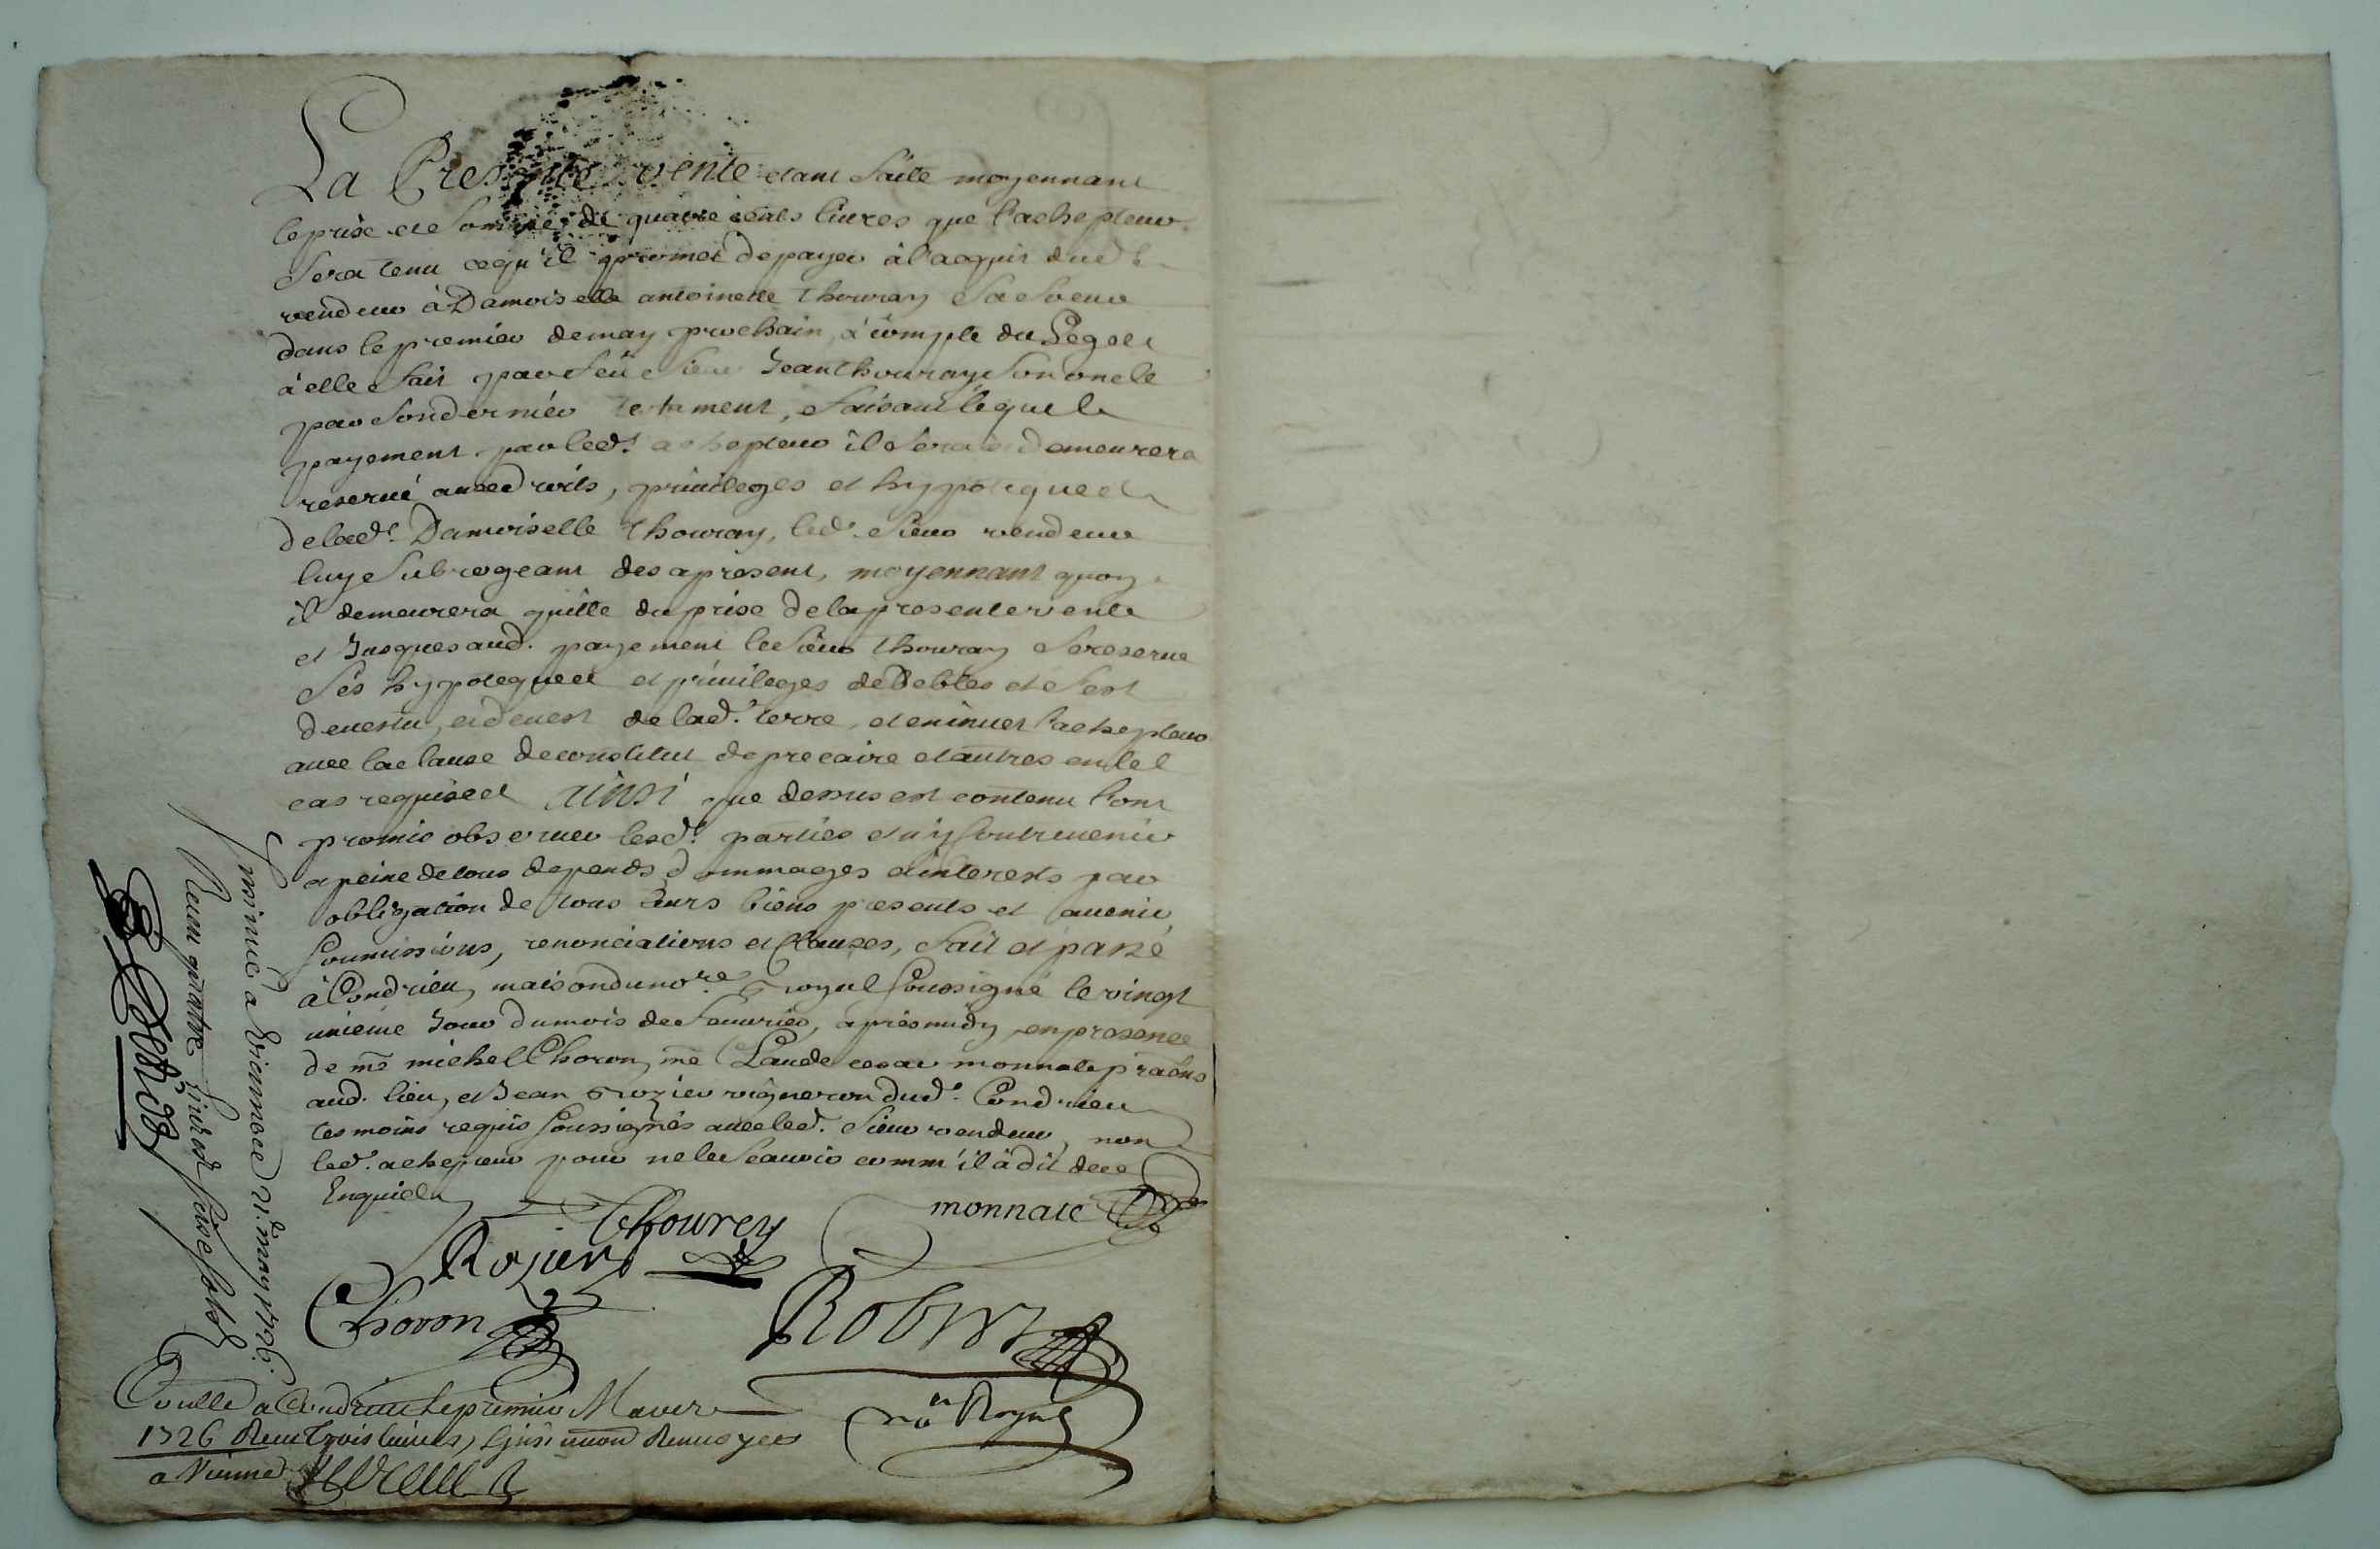 La Presente vente etant faite moyennant
le prix et somme de quatre cents livres que l'achepteur
sera tenu ce qu'il promet de payer à l'acquit dud.
vendeur à Damoiselle antoinette Thouray sa soeur
dans le premier de may prochain, à compte du Legat
à elle fait par feu sieur Jean thouray son oncle
par son dernier testament, faisant lequel
payement par led.t achepteur il sera et demeurera
reservé aux droits, privileges et hypoteques
de lad.e Damoiselle Thouray, led. sieur vendeur
luy subrogeant des apresent, moyennant quoy
il demeurera quitte du prise de la presente vente
et Jusques aud. payement le sieur thouray se reserve
ses hypoteques et privileges de Debtes et s'est
devestu, et devest de lad.e terre, et en invest l'achepteur
avec la clause de constitut de precaire et autres en tel
cas requises ainsi que dessus est contenu l'ont
promis observer lesd. parties et n'y Contrevenir
a peine de tous depends dommages et interests par
obligation de tous leurs biens presents et avenir
soumissions, renonciations et Clauses, fait et passé
à Condrieu, maison du no.re royal soussigné le vingt
unieme Jour du mois de fevrier, apres midy, en presence
de me michel Choron, me Claude monnate
aud. lieu, et Jean rozier vigneron dud. Condrieu
tesmoins requis soussignés avec led. sieur vendeur, non
led. achepteur pour ne le sçavoir comm'il à dit de ce
Enquis
monnate
Thourey
Rojier
Choron
Robin
no.re Royal
Conllé a Condrieu le premier Mars
1726 Receu trois livres, et insinuon Renvoyee
a Vienne
Insinué a Vienne le 21.e may 1726.
Receu quatre livres seize sols